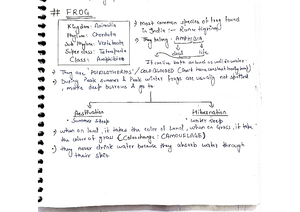 # FROG
Kingdom: Animalia
Phylum: Chordata
Sub Phylum: Vertebrata
Super class: Tetrapoda
Class: Amphibia
→ Most common species of frog found
in India :- Rana tigrina
→ They belong: AMPHIBIA
dual life
→ They are "POIKILOTHERMS"/COLD BLOODED (Don't have constant body temp)
→ During Peak summers & Peak winter frogs are usually not spotted
make deep burrows & go to
Aestivation
• Summer sleep
Hibernation
• Winter sleep
→ when on land, it takes the color of land, when on grass, it take
the color of grass (Color change: CAMOUFLAGE)
→ they never drink water because they absorb water through
their skin.